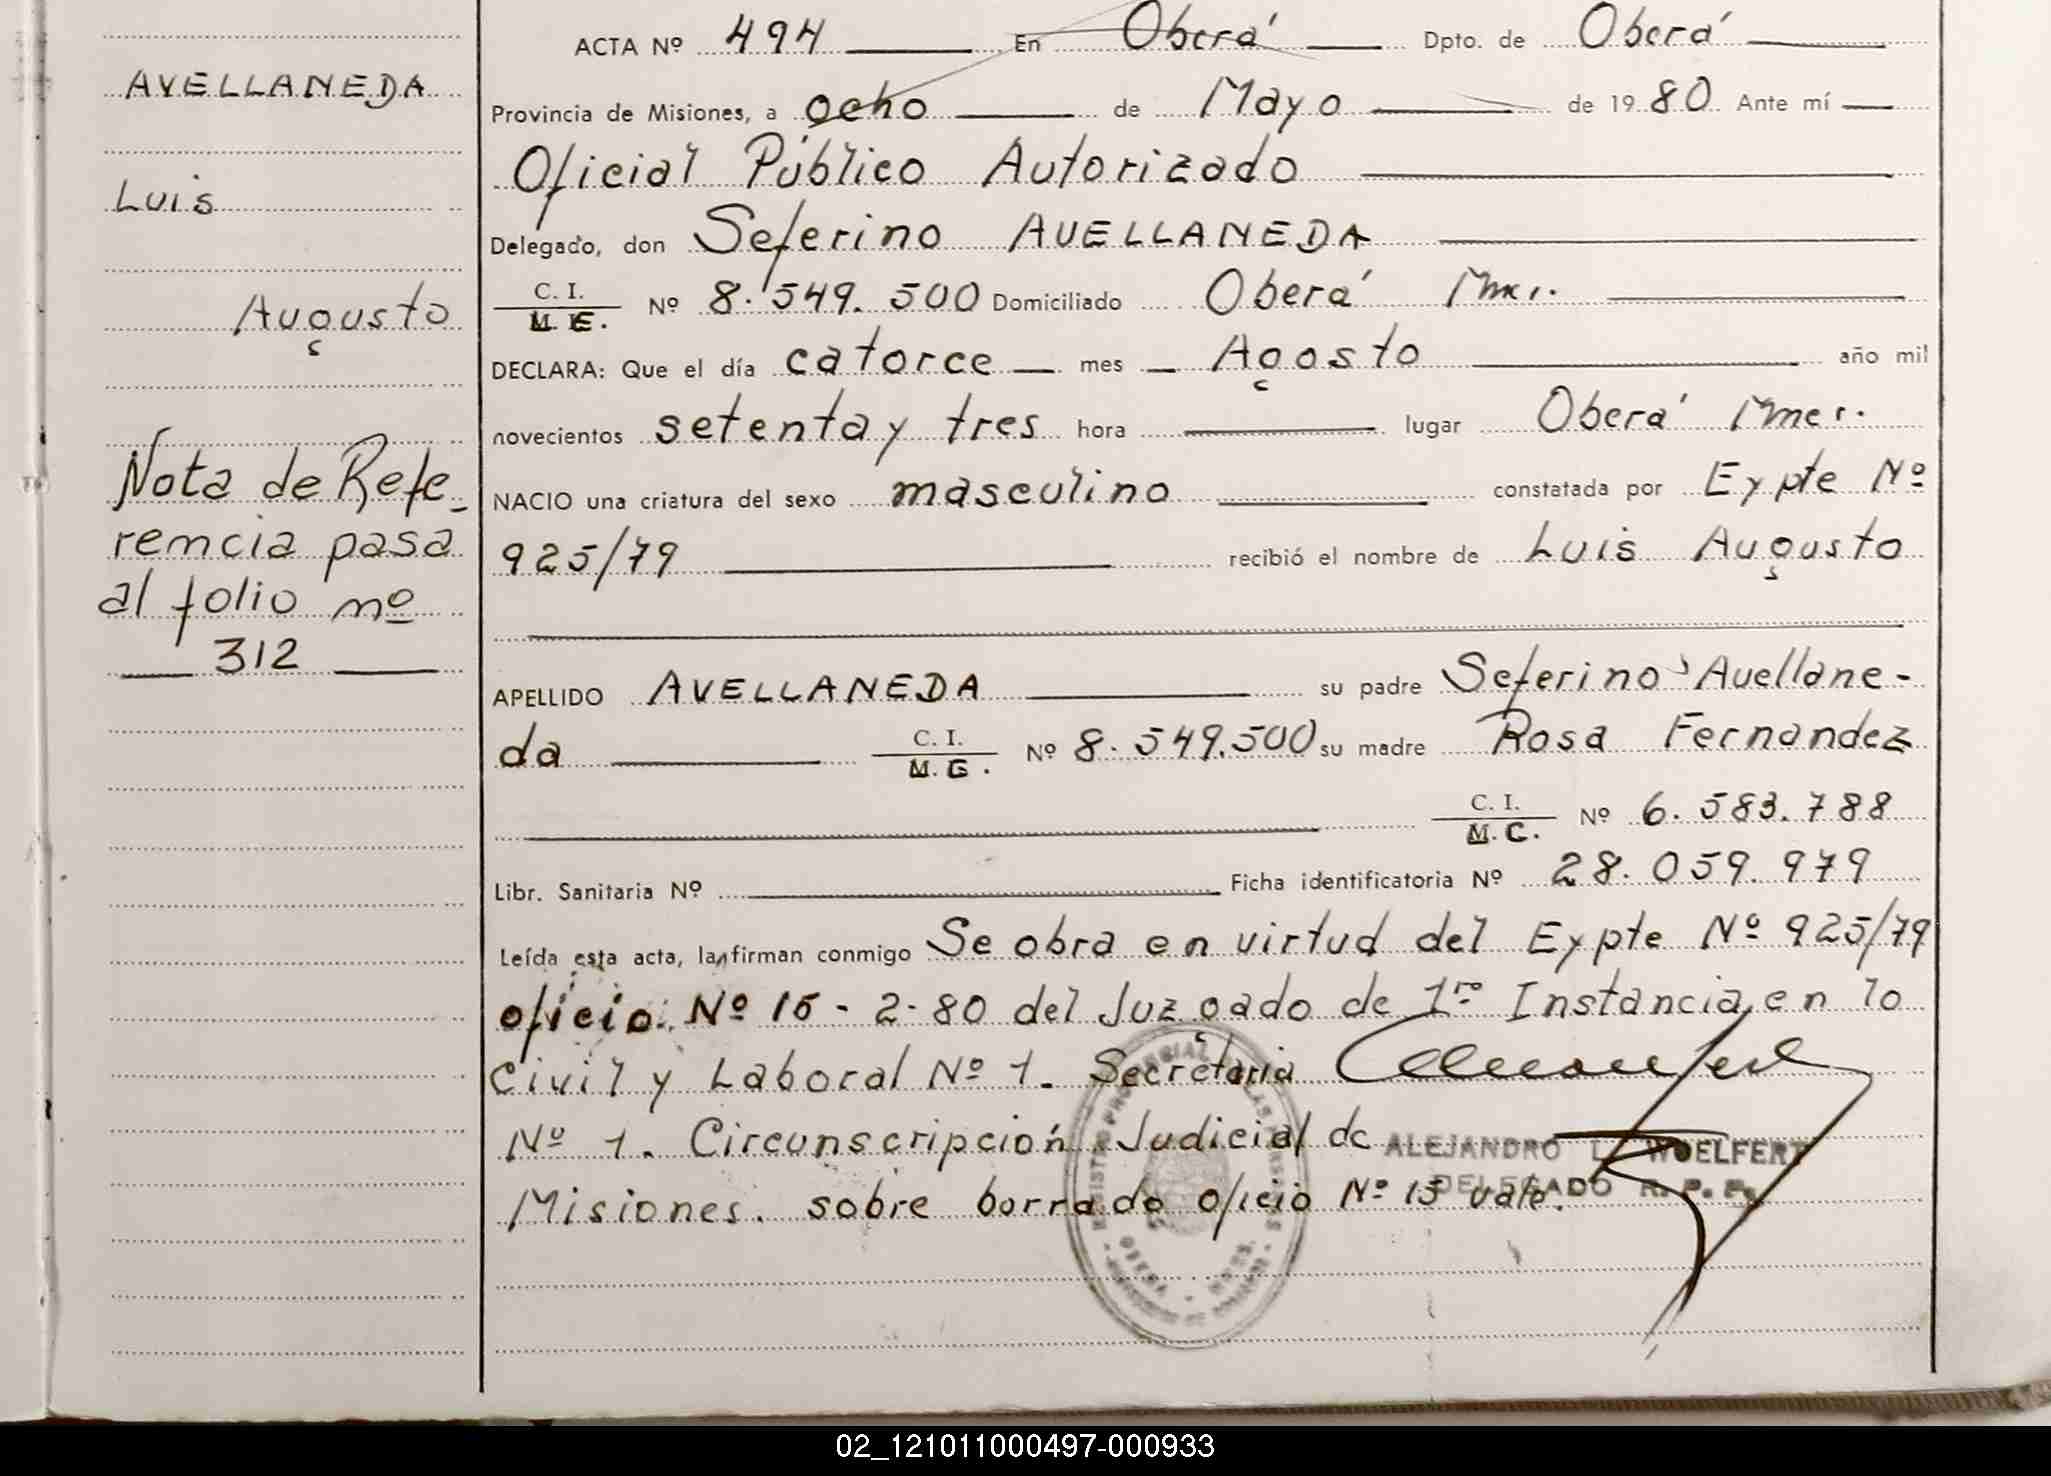 ACTA Nº 494 En Oberá Dpto. de Oberá
AVELLANEDA
Provincia de Misiones, a ocho de Mayo de 1980 Ante mí
Oficial Público Autorizado
Luis
Delegado, don Seferino AVELLANEDA
C. I.
M. E. Nº 8.549.500 Domiciliado Oberá Mnes.
Augusto
DECLARA: Que el día catorce mes Agosto año mil
novecientos setenta y tres hora lugar Oberá Mnes.
Nota de Refe-
rencia pasa
al folio nº
312
NACIO una criatura del sexo masculino constatada por Expte Nº
925/79 recibió el nombre de Luis Augusto
APELLIDO AVELLANEDA su padre Seferino Avellane-
da C. I. Nº 8.549.500 su madre Rosa Fernandez
C. I. Nº 6.583.788
Libr. Sanitaria Nº Ficha identificatoria Nº 28.059.979
Leída esta acta, la firman conmigo Se obra en virtud del Expte Nº 925/79
oficio Nº 15-2-80 del Juzgado de 1ra Instancia en lo
Civil y Laboral Nº 1. Secretaria
Nº 1. Circunscripción Judicial de
ALEJANDRO L. WOELFERT
DELEGADO R. P. P.
Misiones. sobre borrado oficio Nº 15 vale.
02_121011000497-000933